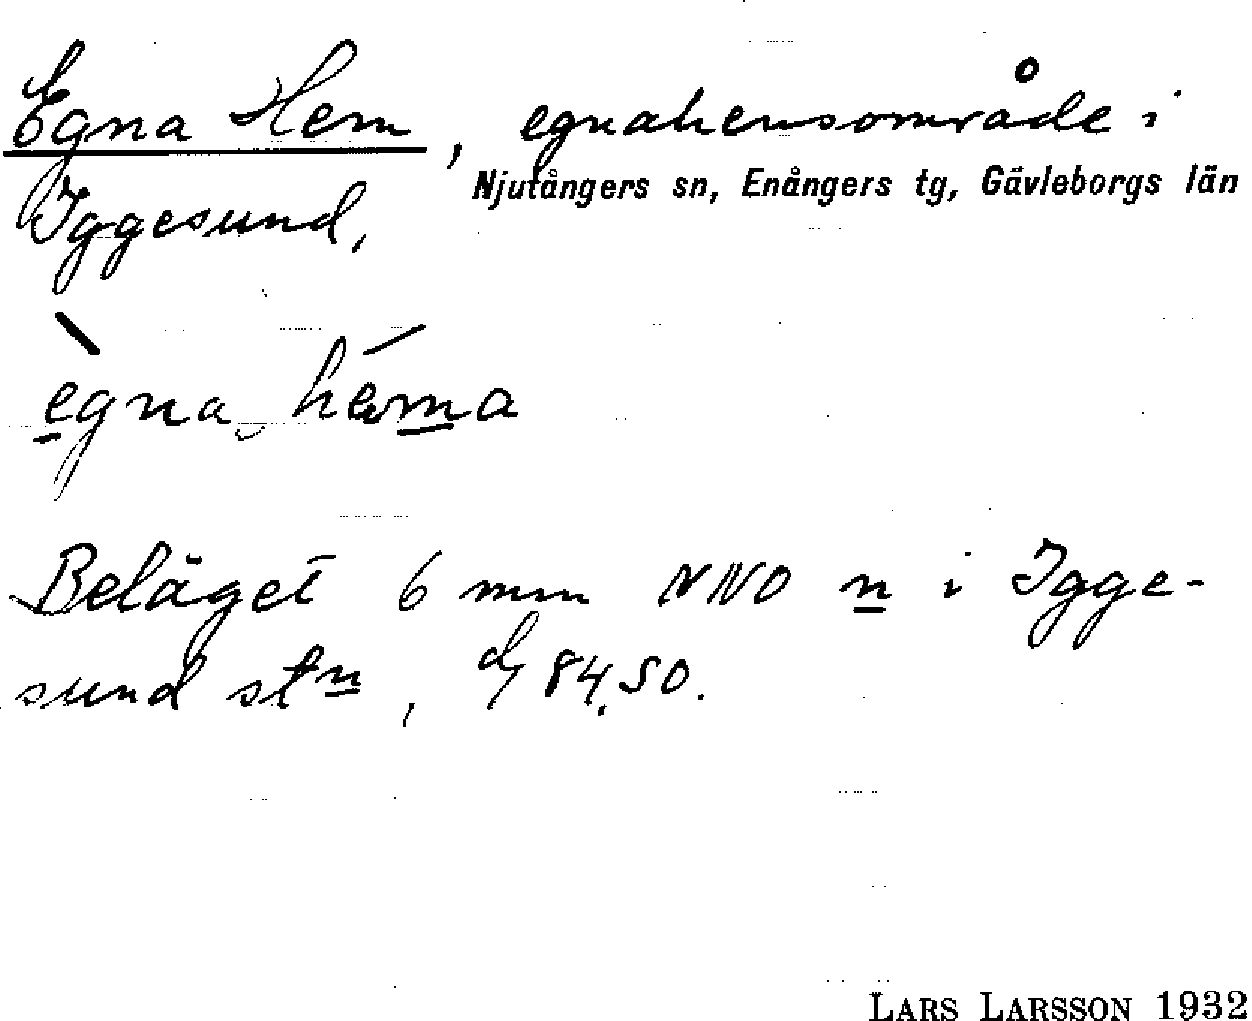 Egna Hem, egnahemsområde i
Njutångers sn, Enångers tg, Gävleborgs län
Iggesund,
ègna hé̄ma
Beläget 6 mm NNO n i Igge-
sund stn, 84,50.
LARS LARSSON 1932